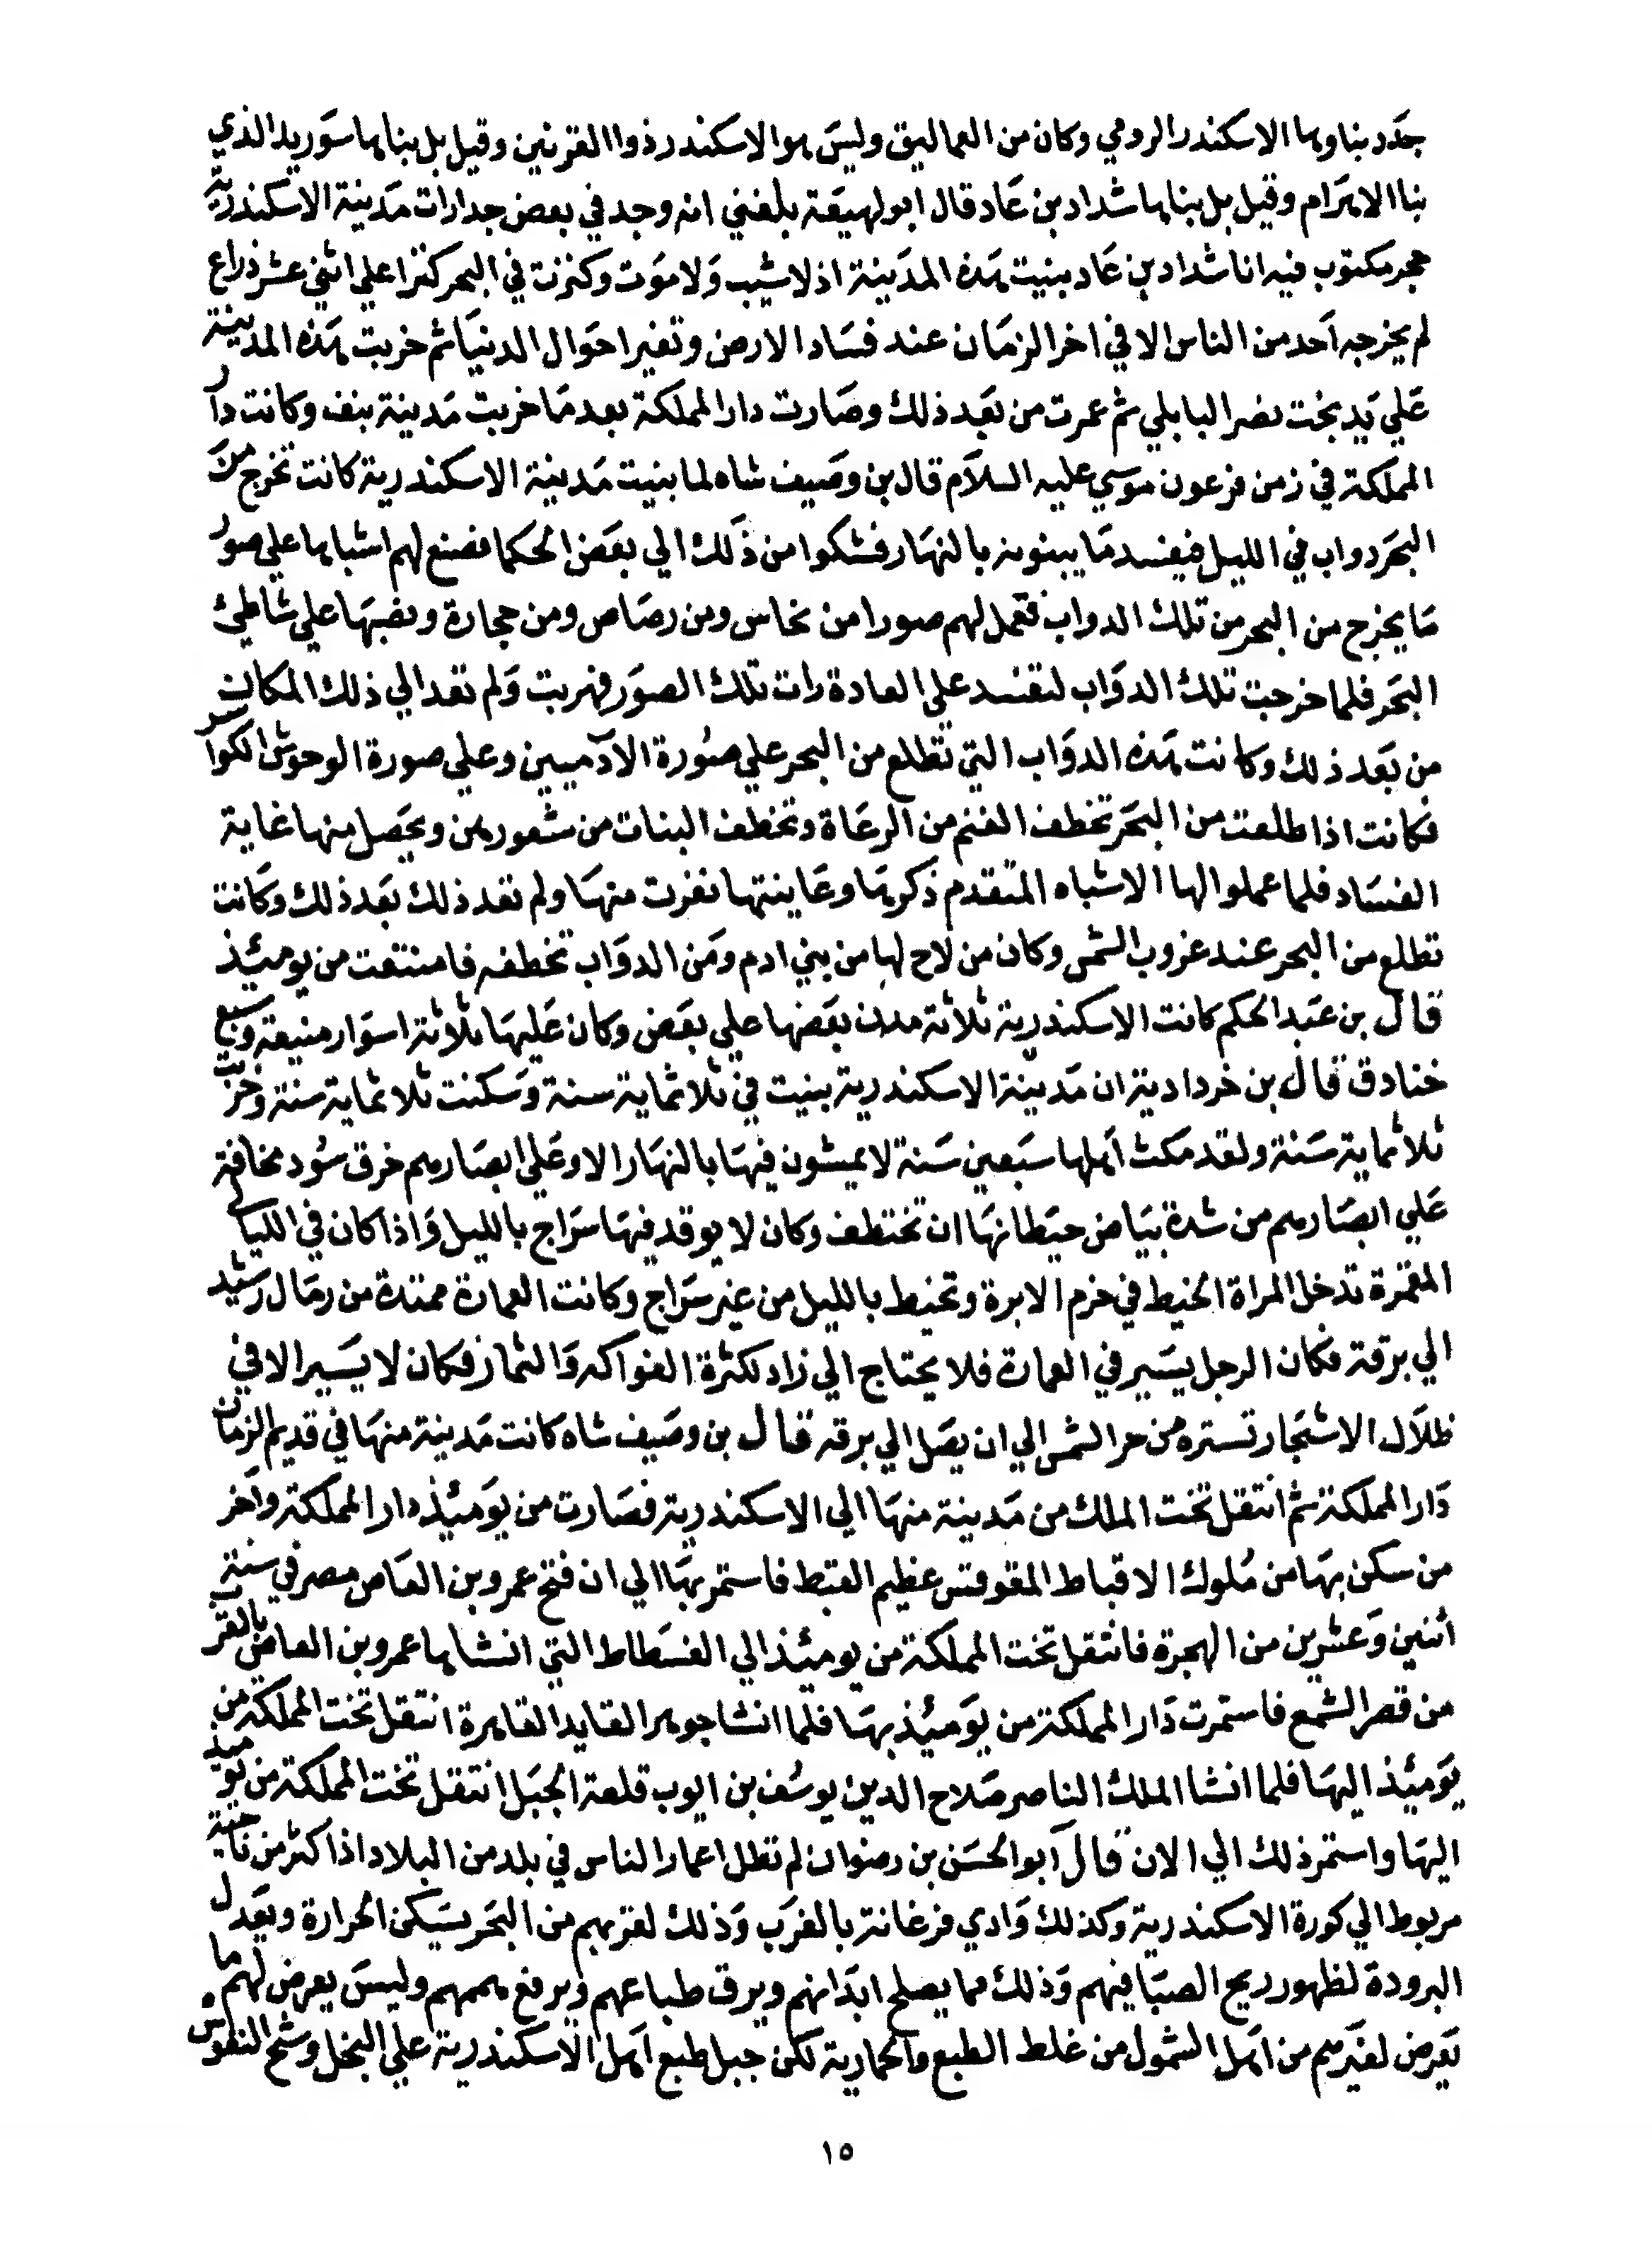 جدد بناوها الاسكندر الرومي وكان من العماليق وليس هو الاسكندر ذوا القرنين وقيل بل بناها سوريد الذي
بنا الاهرام وقيل بل بناها شداد بن عاد قال ابو لهيعة بلغني انه وجد في بعض جدارات مدينة الاسكندرية
حجر مكتوب فيه انا شداد بن عاد بنيت هذه المدينة اذ لا شيب ولا موت وكنزت في البحر كنزا علي اثني عشر ذراع
لم يخرجه احد من الناس الا في اخر الزمان عند فساد الارض وتغير احوال الدنيا ثم خربت هذه المدينة
علي يد بخت نصر البابلي ثم عمرت من بعد ذلك وصارت دار المملكة بعد ما خربت مدينة بنف وكانت دار
المملكة في زمن فرعون موسي عليه السلام قال بن وصيف شاه لما بنيت مدينة الاسكندرية كانت تخرج من
البحر دواب في الليل فيفسد ما يبنونه بالنهار فشكوا من ذلك الي بعض الحكما فصنع لهم اشباها علي صور
ما يخرج من البحر من تلك الدواب فعمل لهم صورا من نحاس ومن رصاص ومن حجارة ونصبها علي شاطئ
البحر فلما خرجت تلك الدواب لتفسد علي العادة رات تلك الصور فهربت ولم تعد الي ذلك المكان
من بعد ذلك وكانت هذه الدواب التي تطلع من البحر علي صورة الآدميين وعلي صورة الوحوش الكواسر
فكانت اذا طلعت من البحر تخطف الغنم من الرعاة وتخطف البنات من شعورهن ويحصل منها غاية
الفساد فلما عملوا لها الاشباه المتقدم ذكرها وعاينتها نفرت منها ولم تعد ذلك بعد ذلك وكانت
تطلع من البحر عند غروب الشمس وكان من لاح لها من بني ادم ومن الدواب تخطفه فامتنعت من يوميئذ
قال بن عبد الحكم كانت الاسكندرية ثلاثة مدن بعضها علي بعض وكان عليها ثلاثة اسوار منيعة وسبع
خنادق قال بن خردادبة ان مدينة الاسكندرية بنيت في ثلاثماية سنة وسكنت ثلاثماية سنة وخربت
ثلاثماية سنة ولقد مكث اهلها سبعين سنة لا يمشون فيها بالنهار الا وعلي ابصارهم خرق سود مخافة
علي ابصارهم من شدة بياض حيطانها ان تختطف وكان لا يوقد فيها سراج بالليل واذا كان في الليالي
المقمرة تدخل المراة الخيط في خرم الابرة وتخيط بالليل من غير سراج وكانت العمارة ممتدة من رمال رشيد
الي برقة فكان الرجل يسير في العمارة فلا يحتاج الي زاد لكثرة الفواكه والثمار فكان لا يسير الا في
ظلال الاشجار تستره من حر الشمس الي ان يصل الي برقه قال بن وصيف شاه كانت مدينة منها في قديم الزمان
دار المملكة ثم انتقل تخت الملك من مدينة منها الي الاسكندرية فصارت من يوميئذ دار المملكة واخر
من سكن بها من ملوك الاقباط المقوقس عظيم القبط فاستمر بها الي ان فتح عمرو بن العاص مصر في سنة
اثنين وعشرين من الهجرة فانتقل تخت المملكة من يوميئذ الي الفسطاط التي انشاها عمرو بن العاص بالقرب
من قصر الشمع فاستمرت دار المملكة من يوميئذ بها فلما انشا جوهر القايد القاهرة انتقل تخت المملكة من
يوميئذ اليها فلما انشا الملك الناصر صلاح الدين يوسف بن ايوب قلعة الجبل انتقل تخت المملكة من يوميذ
اليها واستمر ذلك الي الان قال ابو الحسن بن رضوان لم تطل اعمار الناس في بلد من البلاد اذا كثر من ناحية
مربوط الي كورة الاسكندرية وكذلك وادي فرغانة بالغرب وذلك لقربهم من البحر يسكن الحرارة ويعدل
البرودة لظهور ريح الصبا فيهم وذلك مما يصلح ابدانهم ويرق طباعهم ويرفع هممهم وليس يعرض لهم ما
يعرض لغيرهم من اهل الشمول من غلط الطبع والحمارية لكن جبل طبع اهل الاسكندرية علي البخل وشح النفوس
١٥